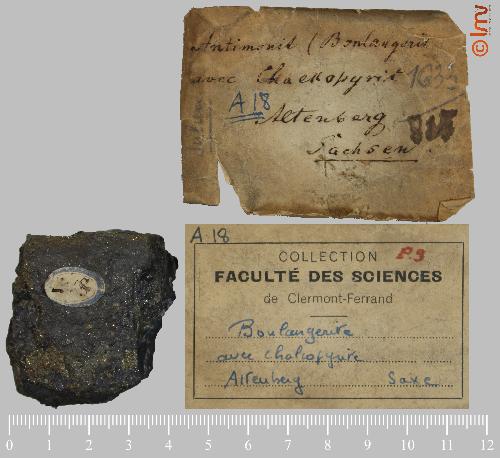 © lmv
Antimonit (Boulangerit
avec Chalkopyrit
1633
A 18
Altenberg
Sachsen
A.18
COLLECTION
P3
FACULTÉ DES SCIENCES
de Clermont-Ferrand
Boulangerite
avec chalcopyrite
Altenberg Saxe
0 1 2 3 4 5 6 7 8 9 10 11 12